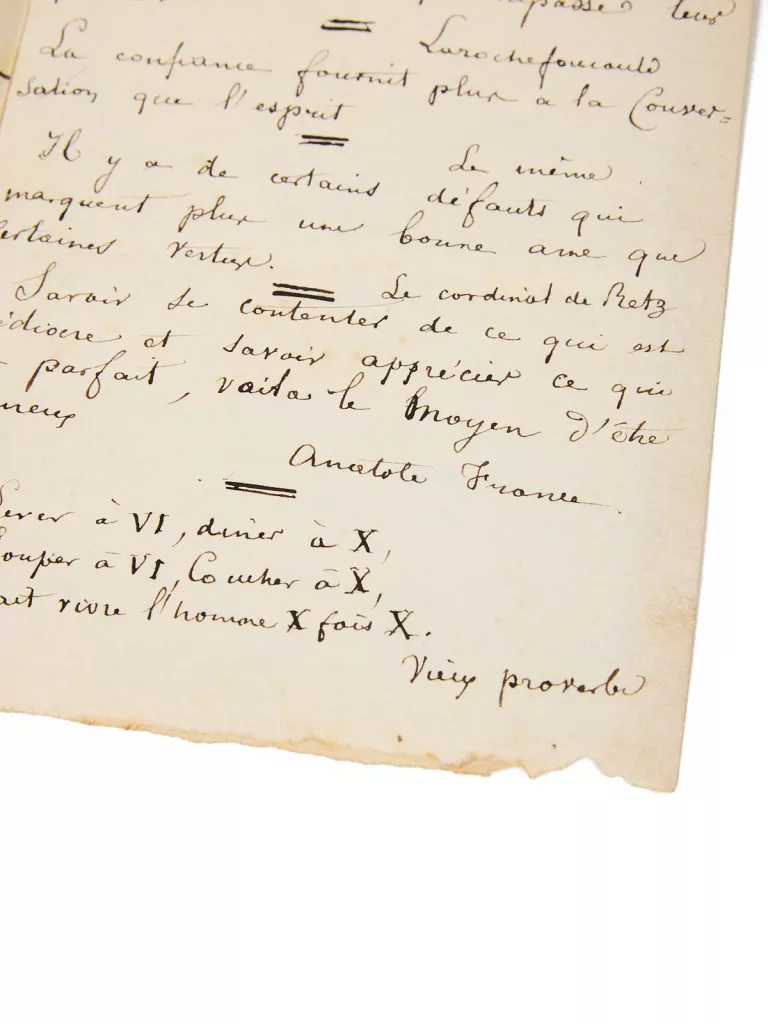 leur
Larochefoucauld
La confiance fournit plus a la Conver=
sation que l'esprit
Le même.
Il y a de certains défauts qui
marquent plus une bonne ame que
certaines vertus.
Le cardinal de Retz
Savoir se contenter de ce qui est
édiocre et savoir apprécier ce qui
parfait, voila le moyen d'être
ureux
Anatole France.
Lever à VI, diner à X,
Souper à VI, Coucher à X,
ait vivre l'homme X fois X.
Vieux proverbe